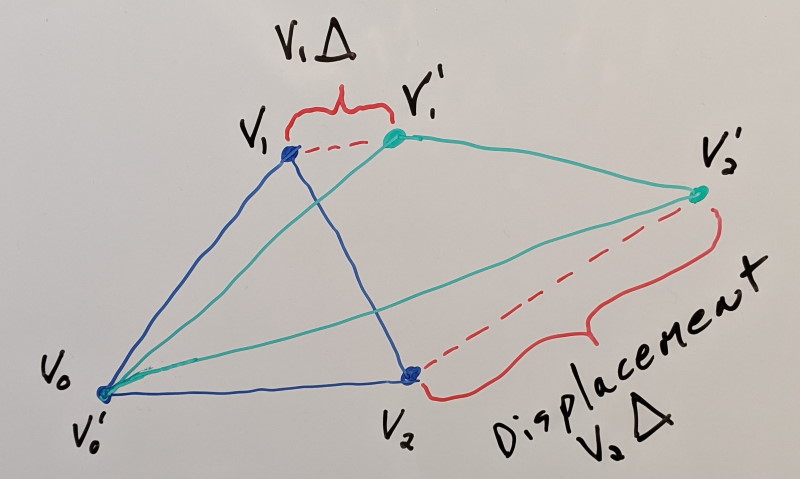 V₁Δ
V₁
V₁'
V₂'
V₀
V₀'
V₂
Displacement
V₂Δ